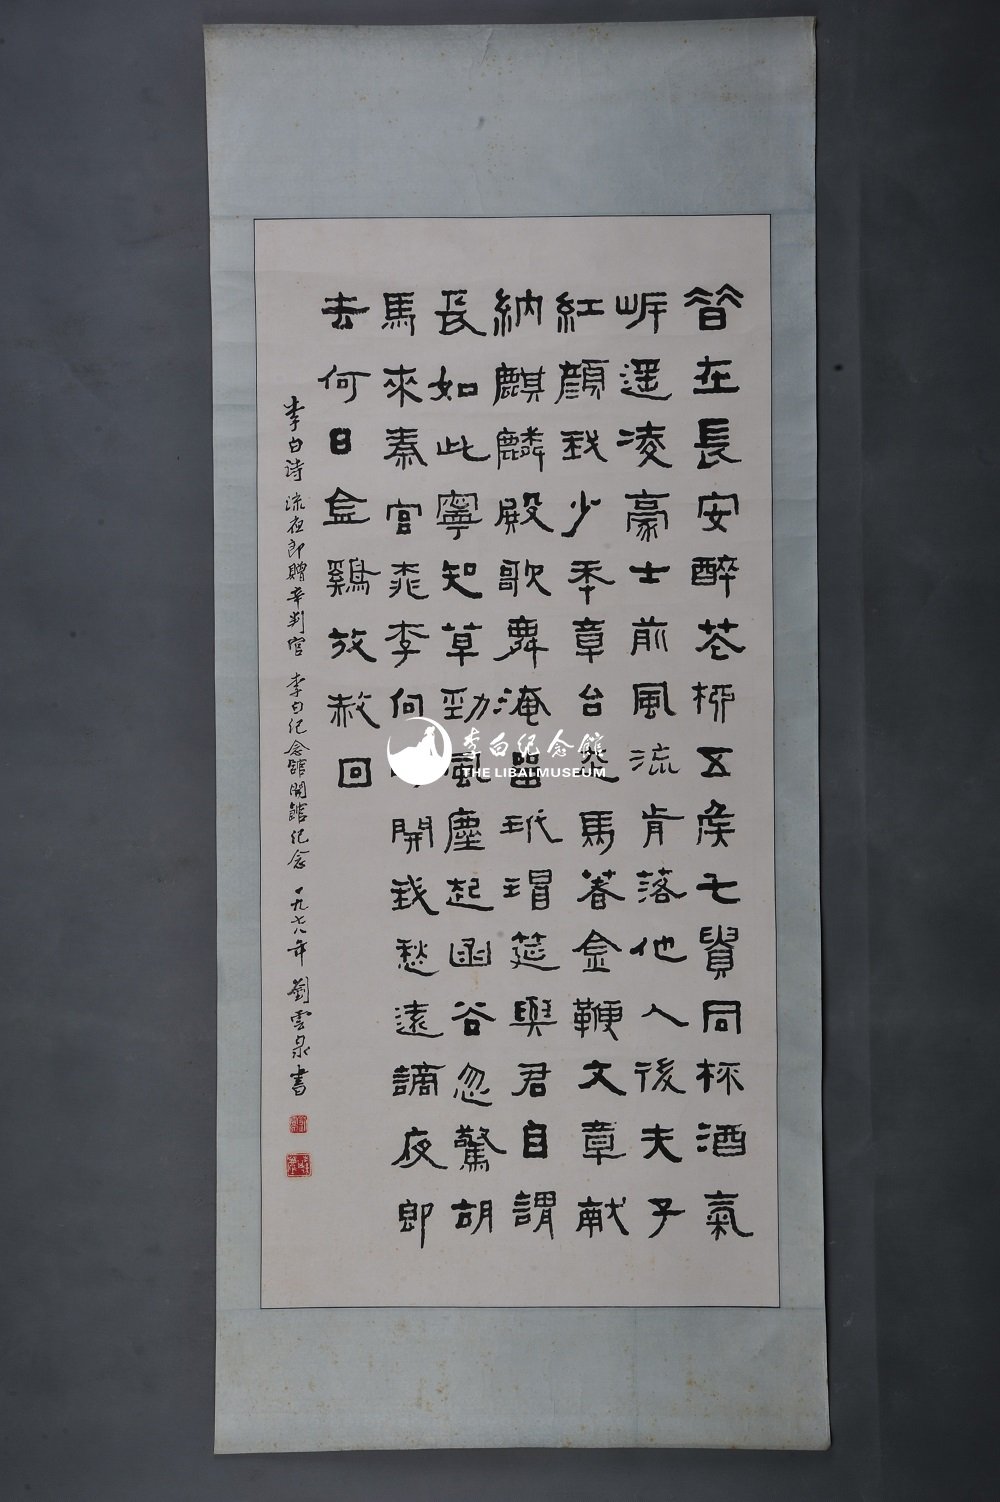 昔在長安醉花柳五侯七貴同杯酒氣
岸遥凌豪士前風流肯落他人後夫子
紅顔我少年章台走馬著金鞭文章献
納麒麟殿歌舞淹留玳瑁筵與君自謂
長如此寧知草勁風塵起函谷忽驚胡
馬來秦宫桃李向明開我愁遠謫夜郎
去何日金鷄放赦回
李白诗 流夜郎贈辛判官 李白纪念館開館纪念 一九七八年 劉雲泉書
李白纪念馆
THE LIBAI MUSEUM